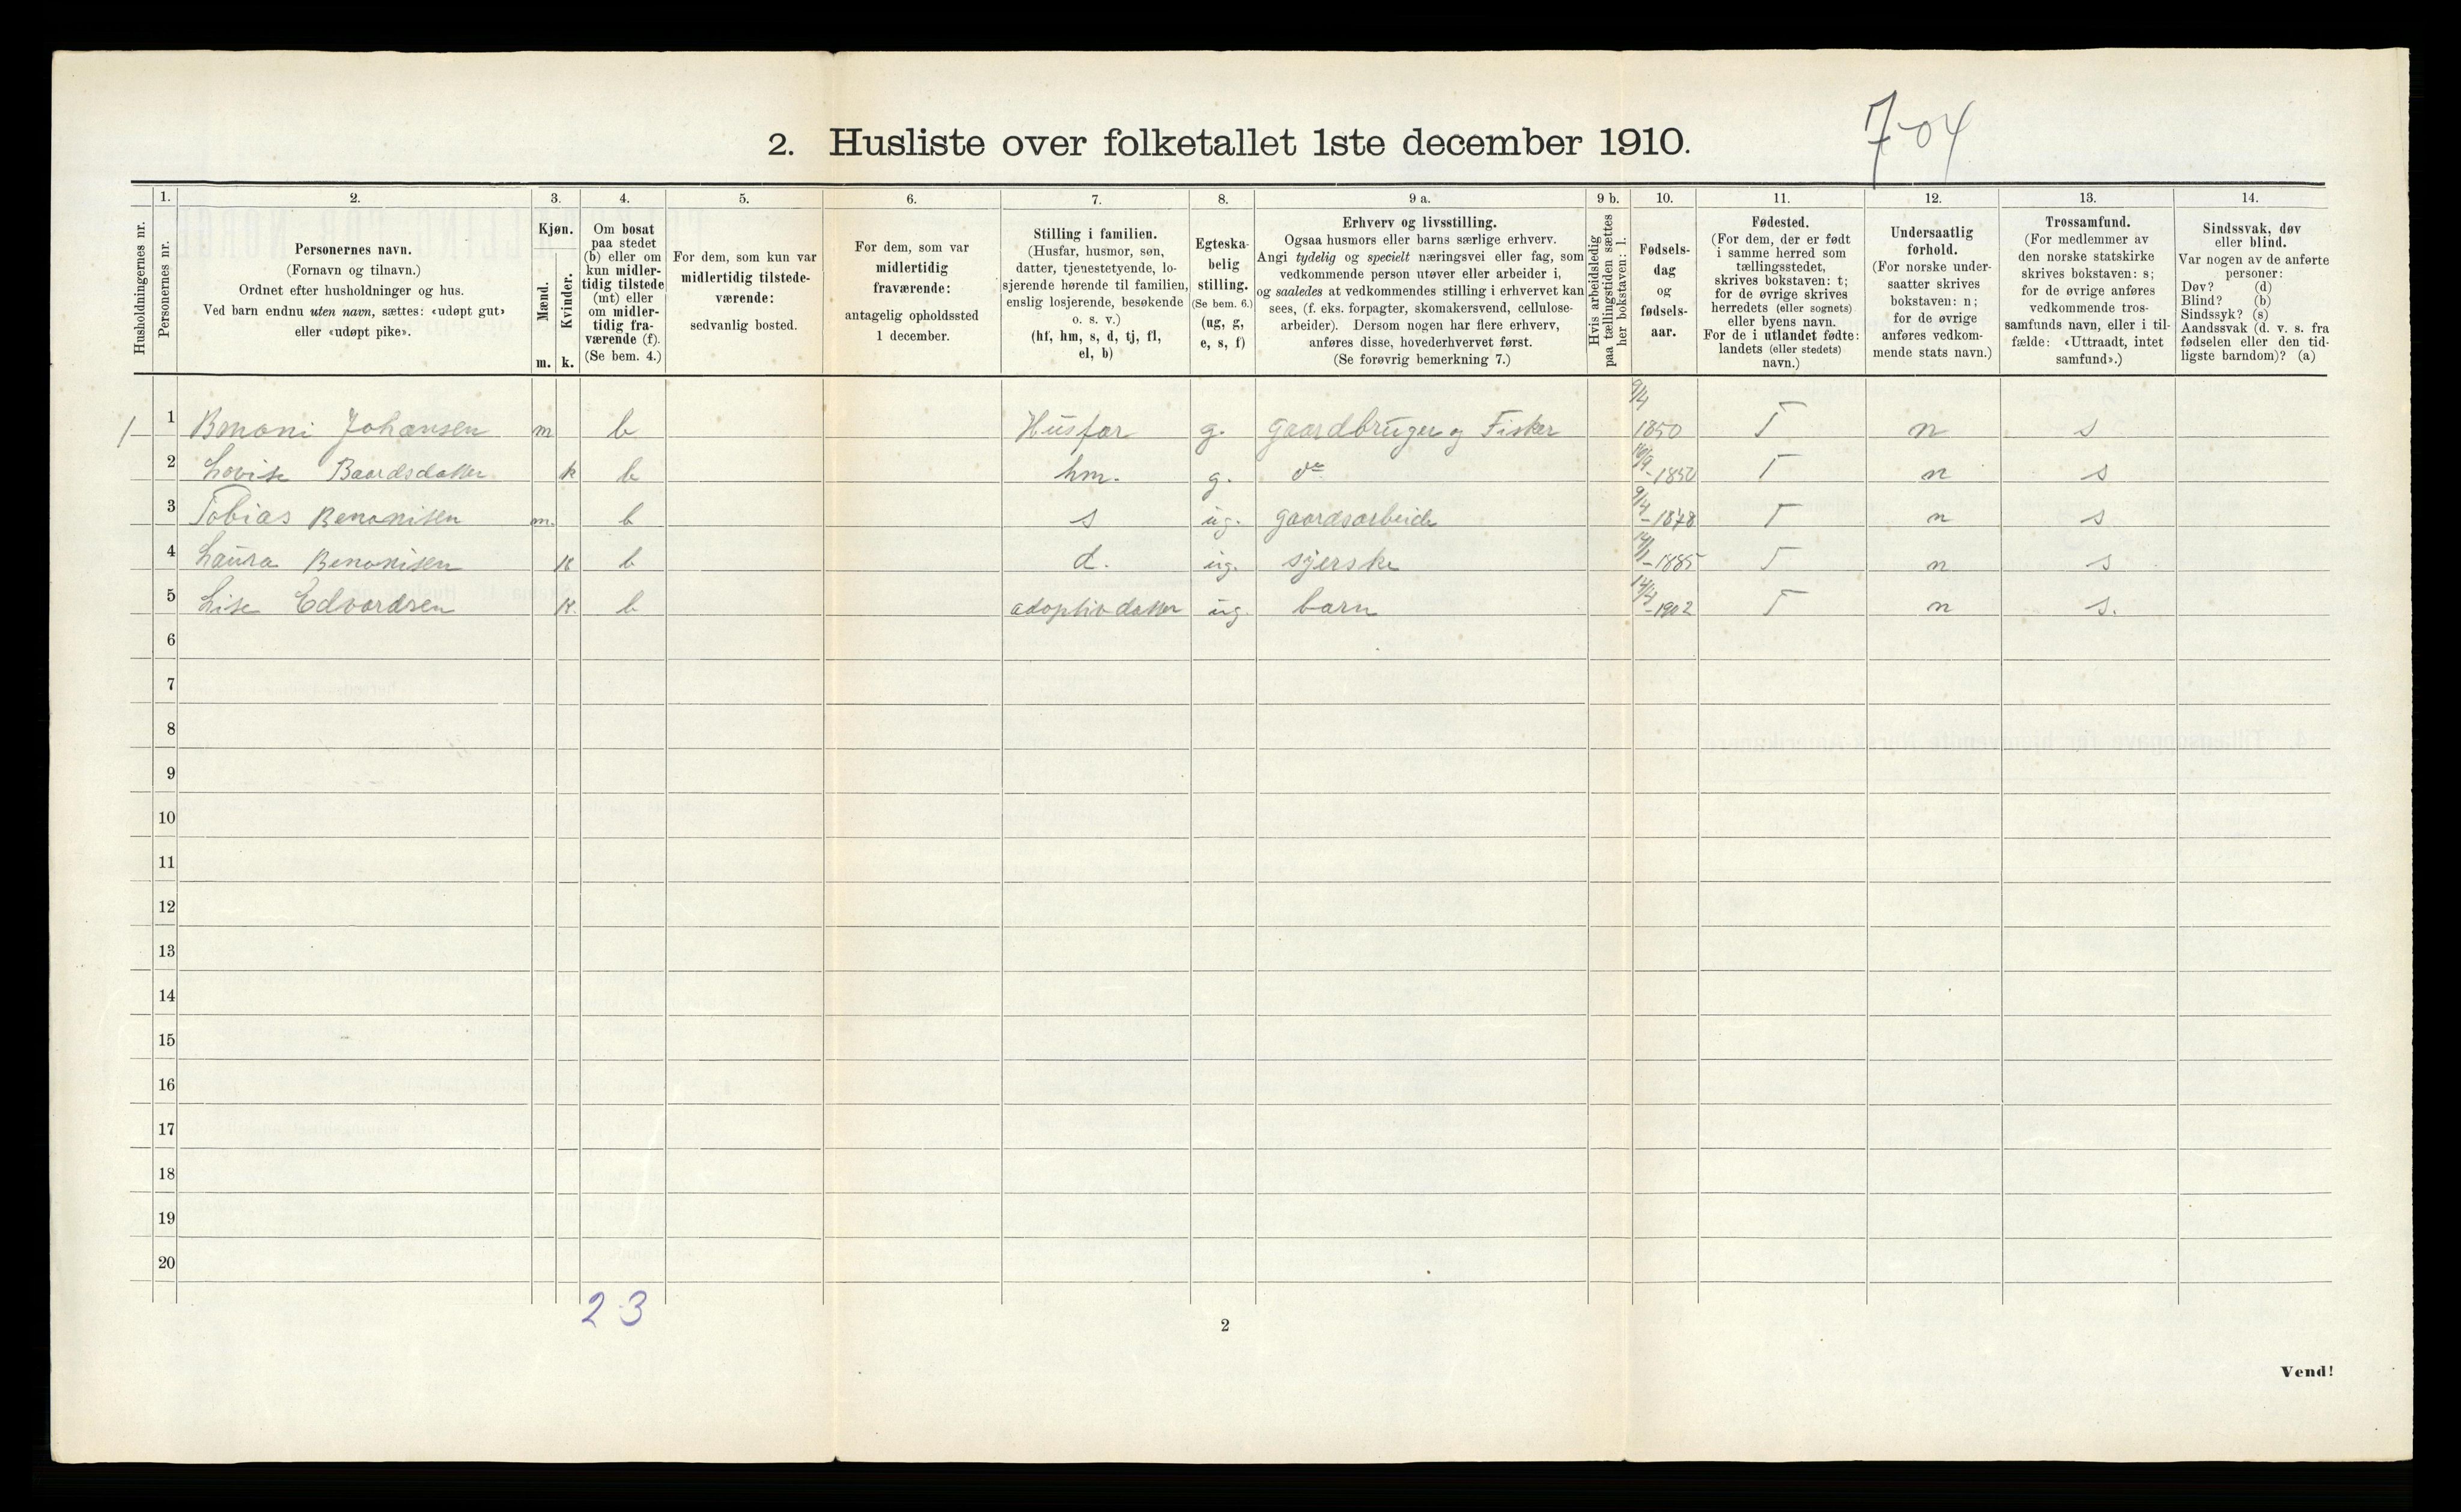 2. Husliste over folketallet 1ste december 1910.
7-04
Husholdningernes nr.
1.
Personernes nr.
2.
Personernes navn.
(Fornavn og tilnavn.)
Ordnet efter husholdninger og hus.
Ved barn endnu uten navn, sættes: «udøpt gut»
eller «udøpt pike».
3.
Kjøn.
Mænd.
m.
Kvinder.
k.
4.
Om bosat
paa stedet
(b) eller om
kun midler-
tidig tilstede
(mt) eller
om midler-
tidig fra-
værende (f).
(Se bem. 4.)
5.
For dem, som kun var
midlertidig tilstede-
værende:
sedvanlig bosted.
6.
For dem, som var
midlertidig
fraværende:
antagelig opholdssted
1 december.
7.
Stilling i familien.
(Husfar, husmor, søn,
datter, tjenestetyende, lo-
sjerende hørende til familien,
enslig losjerende, besøkende
o. s. v.)
(hf, hm, s, d, tj, fl,
el, b)
8.
Egteska-
belig
stilling.
(Se bem. 6.)
(ug, g,
e, s, f)
9 a.
Erhverv og livsstilling.
Ogsaa husmors eller barns særlige erhverv.
Angi tydelig og specielt næringsvei eller fag, som
vedkommende person utøver eller arbeider i,
og saaledes at vedkommendes stilling i erhvervet kan
sees, (f. eks. forpagter, skomakersvend, cellulose-
arbeider). Dersom nogen har flere erhverv,
anføres disse, hovederhvervet først.
(Se forøvrig bemerkning 7.)
9 b.
Hvis arbeidsledig
paa tællingstiden sættes
her bokstaven: l.
10.
Fødsels-
dag
og
fødsels-
aar.
11.
Fødested.
(For dem, der er født
i samme herred som
tællingsstedet,
skrives bokstaven: t;
for de øvrige skrives
herredets (eller sognets)
eller byens navn.
For de i utlandet fødte:
landets (eller stedets)
navn.)
12.
Undersaatlig
forhold.
(For norske under-
saatter skrives
bokstaven: n;
for de øvrige
anføres vedkom-
mende stats navn.)
13.
Trossamfund.
(For medlemmer av
den norske statskirke
skrives bokstaven: s;
for de øvrige anføres
vedkommende tros-
samfunds navn, eller i til-
fælde: «Uttraadt, intet
samfund».)
14.
Sindssvak, døv
eller blind.
Var nogen av de anførte
personer:
Døv? (d)
Blind? (b)
Sindssyk? (s)
Aandssvak (d. v. s. fra
fødselen eller den tid-
ligste barndom)? (a)
1 1 Benoni Johansen m b Husfar g. gaardbruger og Fisker 9/4 1850 T n s
2 Lovise Baardsdatter k b hm. g. do -1850 T n s
3 Tobias Benonisen m. b s ug. gaardsarbeide 9/4 -1878 T n s
4 Laura Benonisen K b d. ug. syerske -1885 T n s
5 Lise Edvardsen K. b adoptivdatter ug. barn 14/4 -1902 T n s.
6
7
8
9
10
11
12
13
14
15
16
17
18
19
20
2 3
2
Vend!